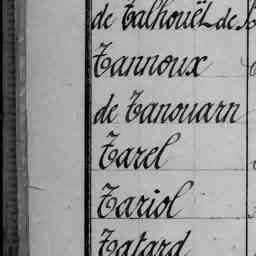 de Talhouët de
Tannoux
de Tanouarn
Tarel
Tariol
Tatard